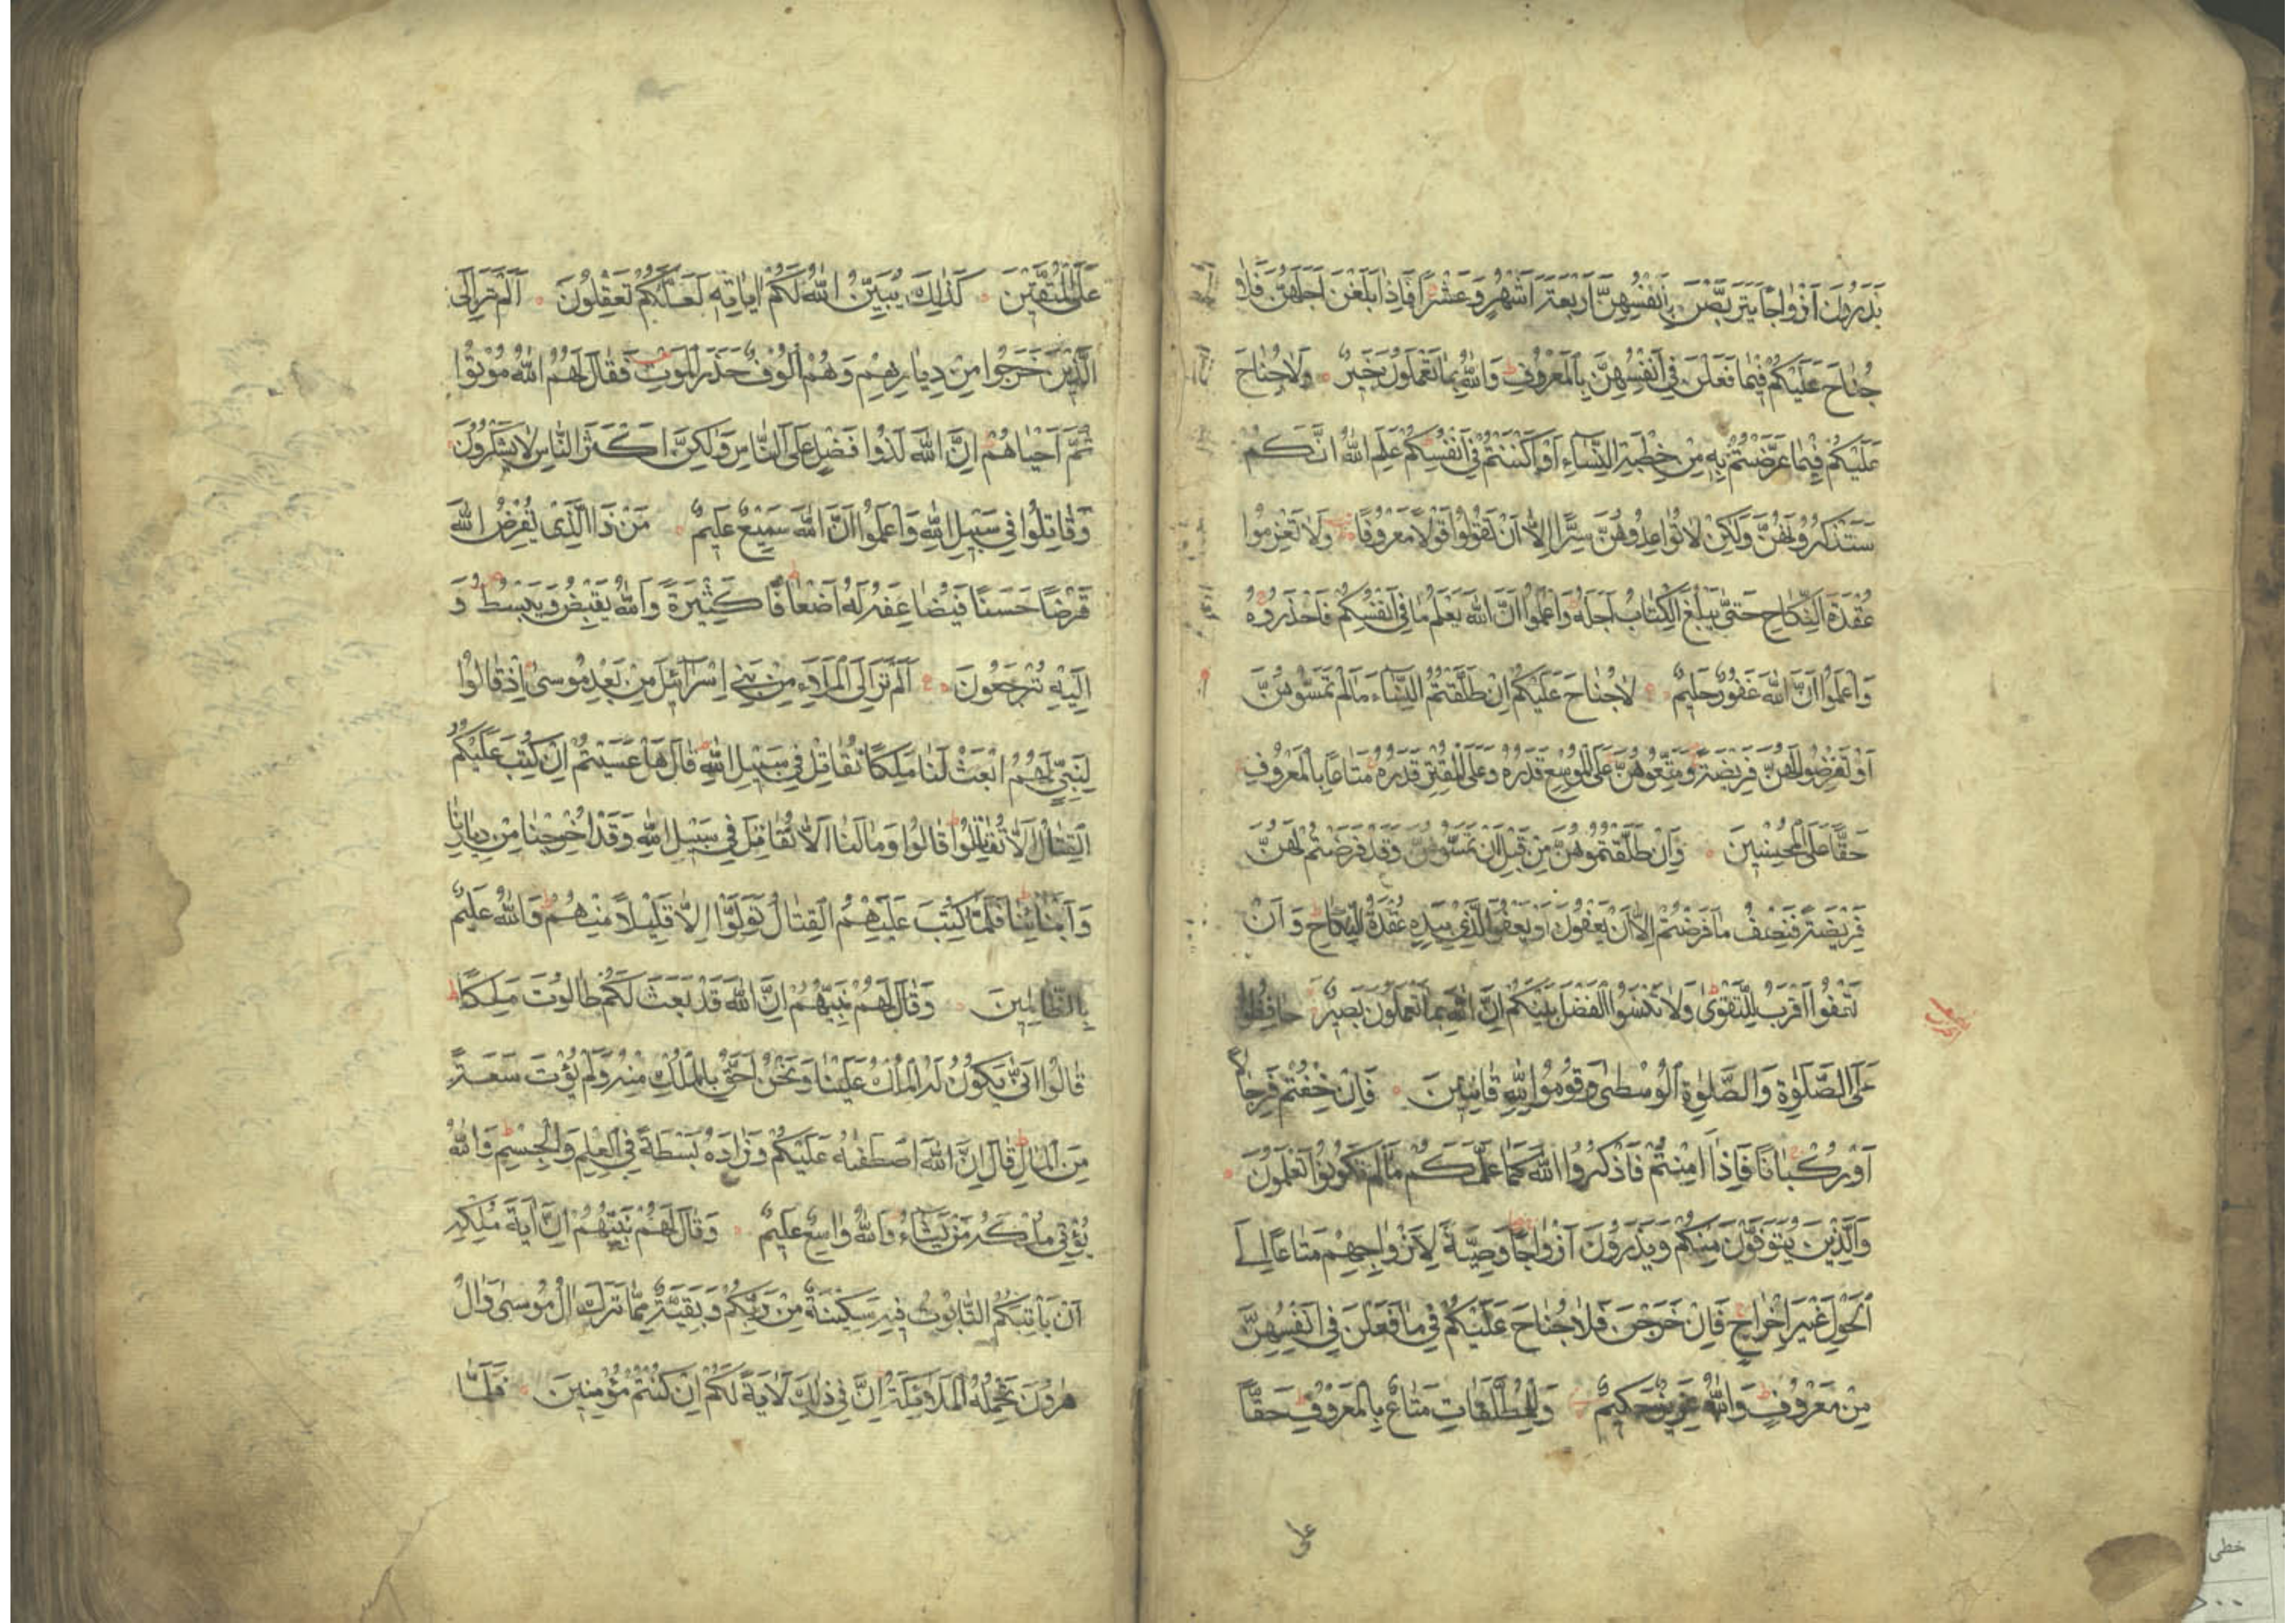 يَذَرُونَ اَزْوٰاجًا يَتَرَبَّصْنَ بِاَنْفُسِهِنَّ اَرْبَعَةَ اَشْهُرٍ وَعَشْرًا فَاِذٰا بَلَغْنَ اَجَلَهُنَّ فَلاٰ
جُنٰاحَ عَلَيْكُمْ فِيمٰا فَعَلْنَ فِى اَنْفُسِهِنَّ بِالْمَعْرُوفِ وَاللّٰهُ بِمٰا تَعْمَلُونَ خَبِيرٌ وَلاٰ جُنٰاحَ
عَلَيْكُمْ فِيمٰا عَرَّضْتُمْ بِهِ مِنْ خِطْبَةِ النِّسٰاءِ اَوْ اَكْنَنْتُمْ فِى اَنْفُسِكُمْ عَلِمَ اللّٰهُ اَنَّكُمْ
سَتَذْكُرُونَهُنَّ وَلٰكِنْ لاٰ تُوٰاعِدُوهُنَّ سِرًّا اِلاّٰ اَنْ تَقُولُوا قَوْلاً مَعْرُوفًا وَلاٰ تَعْزِمُوا
عُقْدَةَ النِّكٰاحِ حَتّٰى يَبْلُغَ الْكِتٰابُ اَجَلَهُ وَاعْلَمُوا اَنَّ اللّٰهَ يَعْلَمُ مٰا فِى اَنْفُسِكُمْ فَاحْذَرُوهُ
وَاعْلَمُوا اَنَّ اللّٰهَ غَفُورٌ حَلِيمٌ لاٰ جُنٰاحَ عَلَيْكُمْ اِنْ طَلَّقْتُمُ النِّسٰاءَ مٰا لَمْ تَمَسُّوهُنَّ
اَوْ تَفْرِضُوا لَهُنَّ فَرِيضَةً وَمَتِّعُوهُنَّ عَلَى الْمُوسِعِ قَدَرُهُ وَعَلَى الْمُقْتِرِ قَدَرُهُ مَتٰاعًا بِالْمَعْرُوفِ
حَقًّا عَلَى الْمُحْسِنِينَ وَاِنْ طَلَّقْتُمُوهُنَّ مِنْ قَبْلِ اَنْ تَمَسُّوهُنَّ وَقَدْ فَرَضْتُمْ لَهُنَّ
فَرِيضَةً فَنِصْفُ مٰا فَرَضْتُمْ اِلاّٰ اَنْ يَعْفُونَ اَوْ يَعْفُوَا الَّذِى بِيَدِهِ عُقْدَةُ النِّكٰاحِ وَاَنْ
تَعْفُوا اَقْرَبُ لِلتَّقْوٰى وَلاٰ تَنْسَوُا الْفَضْلَ بَيْنَكُمْ اِنَّ اللّٰهَ بِمٰا تَعْمَلُونَ بَصِيرٌ حٰافِظُوا
عَلَى الصَّلَوٰةِ وَالصَّلَوٰةِ الْوُسْطٰى وَقُومُوا لِلّٰهِ قٰانِتِينَ فَاِنْ خِفْتُمْ فَرِجٰالاً
اَوْ رُكْبٰانًا فَاِذٰا اَمِنْتُمْ فَاذْكُرُوا اللّٰهَ كَمٰا عَلَّمَكُمْ مٰا لَمْ تَكُونُوا تَعْلَمُونَ
وَالَّذِينَ يُتَوَفَّوْنَ مِنْكُمْ وَيَذَرُونَ اَزْوٰاجًا وَصِيَّةً لِاَزْوٰاجِهِمْ مَتٰاعًا اِلَى
الْحَوْلِ غَيْرَ اِخْرٰاجٍ فَاِنْ خَرَجْنَ فَلاٰ جُنٰاحَ عَلَيْكُمْ فِى مٰا فَعَلْنَ فِى اَنْفُسِهِنَّ
مِنْ مَعْرُوفٍ وَاللّٰهُ عَزِيزٌ حَكِيمٌ وَلِلْمُطَلَّقٰاتِ مَتٰاعٌ بِالْمَعْرُوفِ حَقًّا
على
عَلَى الْمُتَّقِينَ كَذٰلِكَ يُبَيِّنُ اللّٰهُ لَكُمْ اٰيٰاتِهِ لَعَلَّكُمْ تَعْقِلُونَ اَلَمْ تَرَ اِلَى
الَّذِينَ خَرَجُوا مِنْ دِيٰارِهِمْ وَهُمْ اُلُوفٌ حَذَرَ الْمَوْتِ فَقٰالَ لَهُمُ اللّٰهُ مُوتُوا
ثُمَّ اَحْيٰاهُمْ اِنَّ اللّٰهَ لَذُوا فَضْلٍ عَلَى النّٰاسِ وَلٰكِنَّ اَكْثَرَ النّٰاسِ لاٰ يَشْكُرُونَ
وَقٰاتِلُوا فِى سَبِيلِ اللّٰهِ وَاعْلَمُوا اَنَّ اللّٰهَ سَمِيعٌ عَلِيمٌ مَنْ ذَا الَّذِى يُقْرِضُ اللّٰهَ
قَرْضًا حَسَنًا فَيُضٰاعِفَهُ لَهُ اَضْعٰافًا كَثِيرَةً وَاللّٰهُ يَقْبِضُ وَيَبْسُطُ وَ
اِلَيْهِ تُرْجَعُونَ اَلَمْ تَرَ اِلَى الْمَلَاءِ مِنْ بَنِى اِسْرٰائِيلَ مِنْ بَعْدِ مُوسٰى اِذْ قٰالُوا
لِنَبِيٍّ لَهُمُ ابْعَثْ لَنٰا مَلِكًا نُقٰاتِلْ فِى سَبِيلِ اللّٰهِ قٰالَ هَلْ عَسَيْتُمْ اِنْ كُتِبَ عَلَيْكُمُ
الْقِتٰالُ اَلاّٰ تُقٰاتِلُوا قٰالُوا وَمٰا لَنٰا اَلاّٰ نُقٰاتِلَ فِى سَبِيلِ اللّٰهِ وَقَدْ اُخْرِجْنٰا مِنْ دِيٰارِنٰا
وَاَبْنٰائِنٰا فَلَمّٰا كُتِبَ عَلَيْهِمُ الْقِتٰالُ تَوَلَّوْا اِلاّٰ قَلِيلاً مِنْهُمْ وَاللّٰهُ عَلِيمٌ
بِالظّٰالِمِينَ وَقٰالَ لَهُمْ نَبِيُّهُمْ اِنَّ اللّٰهَ قَدْ بَعَثَ لَكُمْ طٰالُوتَ مَلِكًا
قٰالُوا اَنّٰى يَكُونُ لَهُ الْمُلْكُ عَلَيْنٰا وَنَحْنُ اَحَقُّ بِالْمُلْكِ مِنْهُ وَلَمْ يُؤْتَ سَعَةً
مِنَ الْمٰالِ قٰالَ اِنَّ اللّٰهَ اصْطَفٰيهُ عَلَيْكُمْ وَزٰادَهُ بَسْطَةً فِى الْعِلْمِ وَالْجِسْمِ وَاللّٰهُ
يُؤْتِى مُلْكَهُ مَنْ يَشٰاءُ وَاللّٰهُ وٰاسِعٌ عَلِيمٌ وَقٰالَ لَهُمْ نَبِيُّهُمْ اِنَّ اٰيَةَ مُلْكِهِ
اَنْ يَاْتِيَكُمُ التّٰابُوتُ فِيهِ سَكِينَةٌ مِنْ رَبِّكُمْ وَبَقِيَّةٌ مِمّٰا تَرَكَ اٰلُ مُوسٰى وَاٰلُ
هٰرُونَ تَحْمِلُهُ الْمَلاٰئِكَةُ اِنَّ فِى ذٰلِكَ لَاٰيَةً لَكُمْ اِنْ كُنْتُمْ مُؤْمِنِينَ فَلَمّٰا
خطی